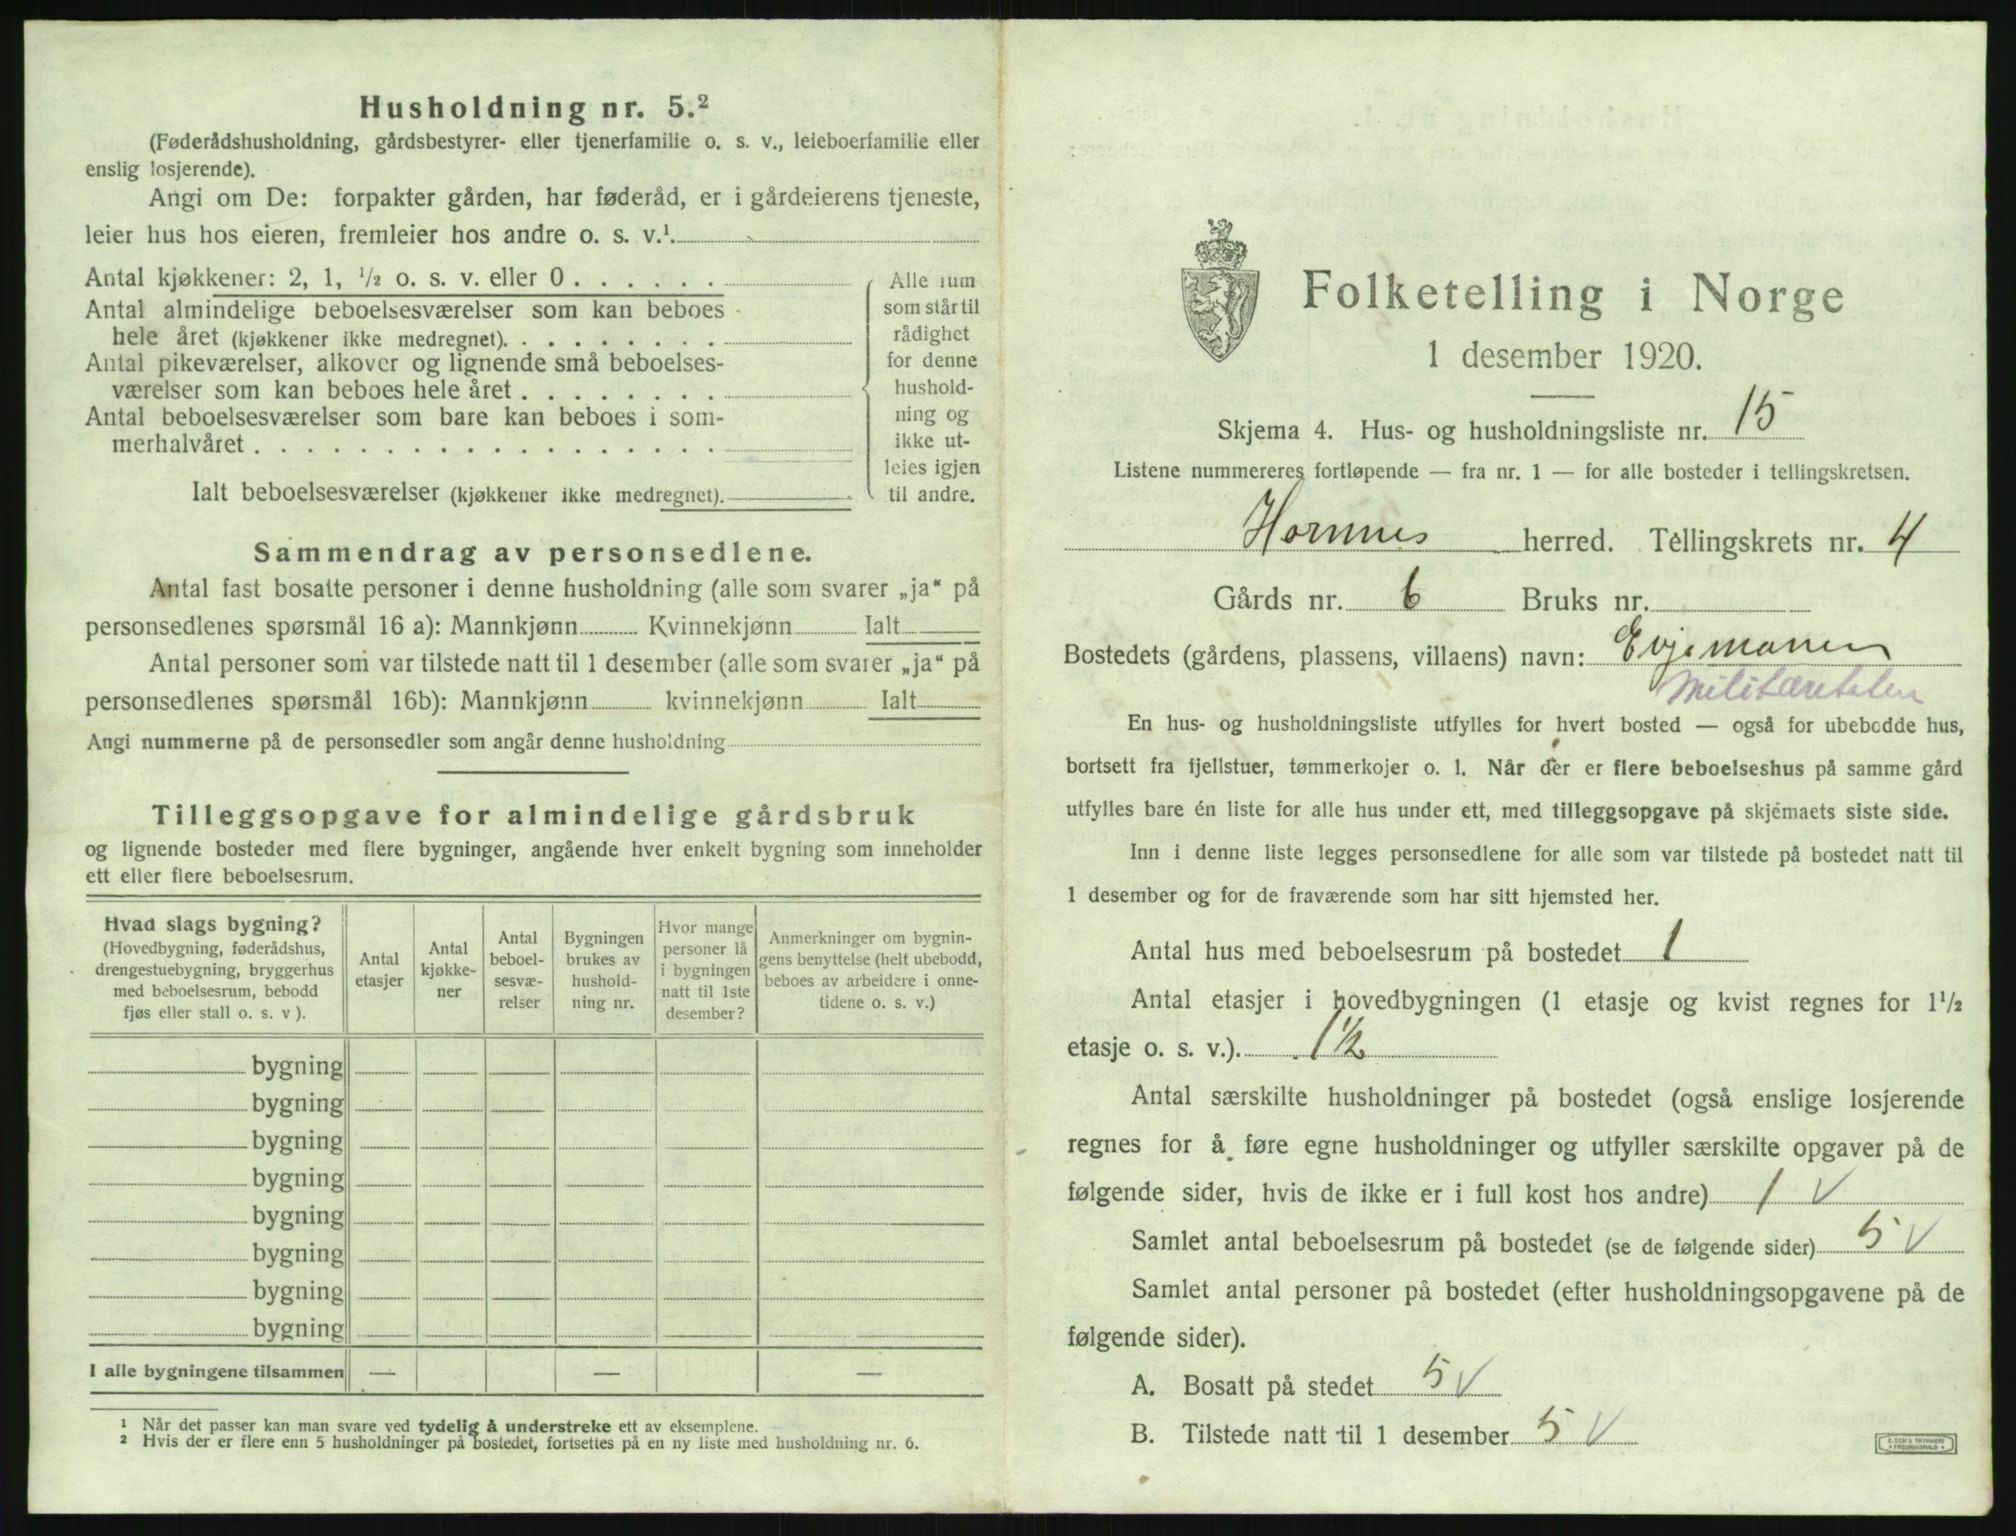 Husholdning nr. 5.²
(Føderådshusholdning, gårdsbestyrer- eller tjenerfamilie o. s. v., leieboerfamilie eller
enslig losjerende).
Angi om De: forpakter gården, har føderåd, er i gårdeierens tjeneste,
leier hus hos eieren, fremleier hos andre o. s. v.¹
Antal kjøkkener: 2, 1, ½ o. s. v. eller 0 . . . . . .
Antal almindelige beboelsesværelser som kan beboes
hele året (kjøkkener ikke medregnet). . . . . . . . .
Antal pikeværelser, alkover og lignende små beboelses-
værelser som kan beboes hele året . . . . . . . .
Antal beboelsesværelser som bare kan beboes i som-
merhalvåret . . . . . . . . . . . . . . . . . .
Ialt beboelsesværelser (kjøkkener ikke medregnet).
Alle rum
som står til
rådighet
for denne
hushold-
ning og
ikke ut-
leies igjen
til andre.
Sammendrag av personsedlene.
Antal fast bosatte personer i denne husholdning (alle som svarer „ja“ på
personsedlenes spørsmål 16 a): Mannkjønn Kvinnekjønn Ialt
Antal personer som var tilstede natt til 1 desember (alle som svarer „ja“ på
personsedlenes spørsmål 16b): Mannkjønn kvinnekjønn Ialt
Angi nummerne på de personsedler som angår denne husholdning
Tilleggsopgave for almindelige gårdsbruk
og lignende bosteder med flere bygninger, angående hver enkelt bygning som inneholder
ett eller flere beboelsesrum.
Hvad slags bygning?
(Hovedbygning, føderådshus,
drengestuebygning, bryggerhus
med beboelsesrum, bebodd
fjøs eller stall o. s. v ).
Antal
etasjer
Antal
kjøkke-
ner
Antal
beboel-
sesvæ-
relser
Bygningen
brukes av
hushold-
ning nr.
Hvor mange
personer lå
i bygningen
natt til 1ste
desember?
Anmerkninger om bygnin-
gens benyttelse (helt ubebodd,
beboes av arbeidere i onne-
tidene o. s. v.)
bygning
bygning
bygning
bygning
bygning
bygning
bygning
bygning
I alle bygningene tilsammen — — —
¹ Når det passer kan man svare ved tydelig å understreke ett av eksemplene.
² Hvis der er flere enn 5 husholdninger på bostedet, fortsettes på en ny liste med husholdning nr. 6.
Folketelling i Norge
1 desember 1920.
Skjema 4. Hus- og husholdningsliste nr. 15
Listene nummereres fortløpende — fra nr. 1 — for alle bosteder i tellingskretsen.
Hornnes herred. Tellingskrets nr. 4
Gårds nr. 6 Bruks nr.
Bostedets (gårdens, plassens, villaens) navn: Evjemonen
Militæretaten
En hus- og husholdningsliste utfylles for hvert bosted — også for ubebodde hus,
bortsett fra fjellstuer, tømmerkojer o. l. Når der er flere beboelseshus på samme gård
utfylles bare én liste for alle hus under ett, med tilleggsopgave på skjemaets siste side.
Inn i denne liste legges personsedlene for alle som var tilstede på bostedet natt til
1 desember og for de fraværende som har sitt hjemsted her.
Antal hus med beboelsesrum på bostedet 1
Antal etasjer i hovedbygningen (1 etasje og kvist regnes for 1½
etasje o. s. v.). 1½
Antal særskilte husholdninger på bostedet (også enslige losjerende
regnes for å føre egne husholdninger og utfyller særskilte opgaver på de
følgende sider, hvis de ikke er i full kost hos andre) 1 V
Samlet antal beboelsesrum på bostedet (se de følgende sider) 5 V
Samlet antal personer på bostedet (efter husholdningsopgavene på de
følgende sider).
A. Bosatt på stedet 5 V
B. Tilstede natt til 1 desember 5 V